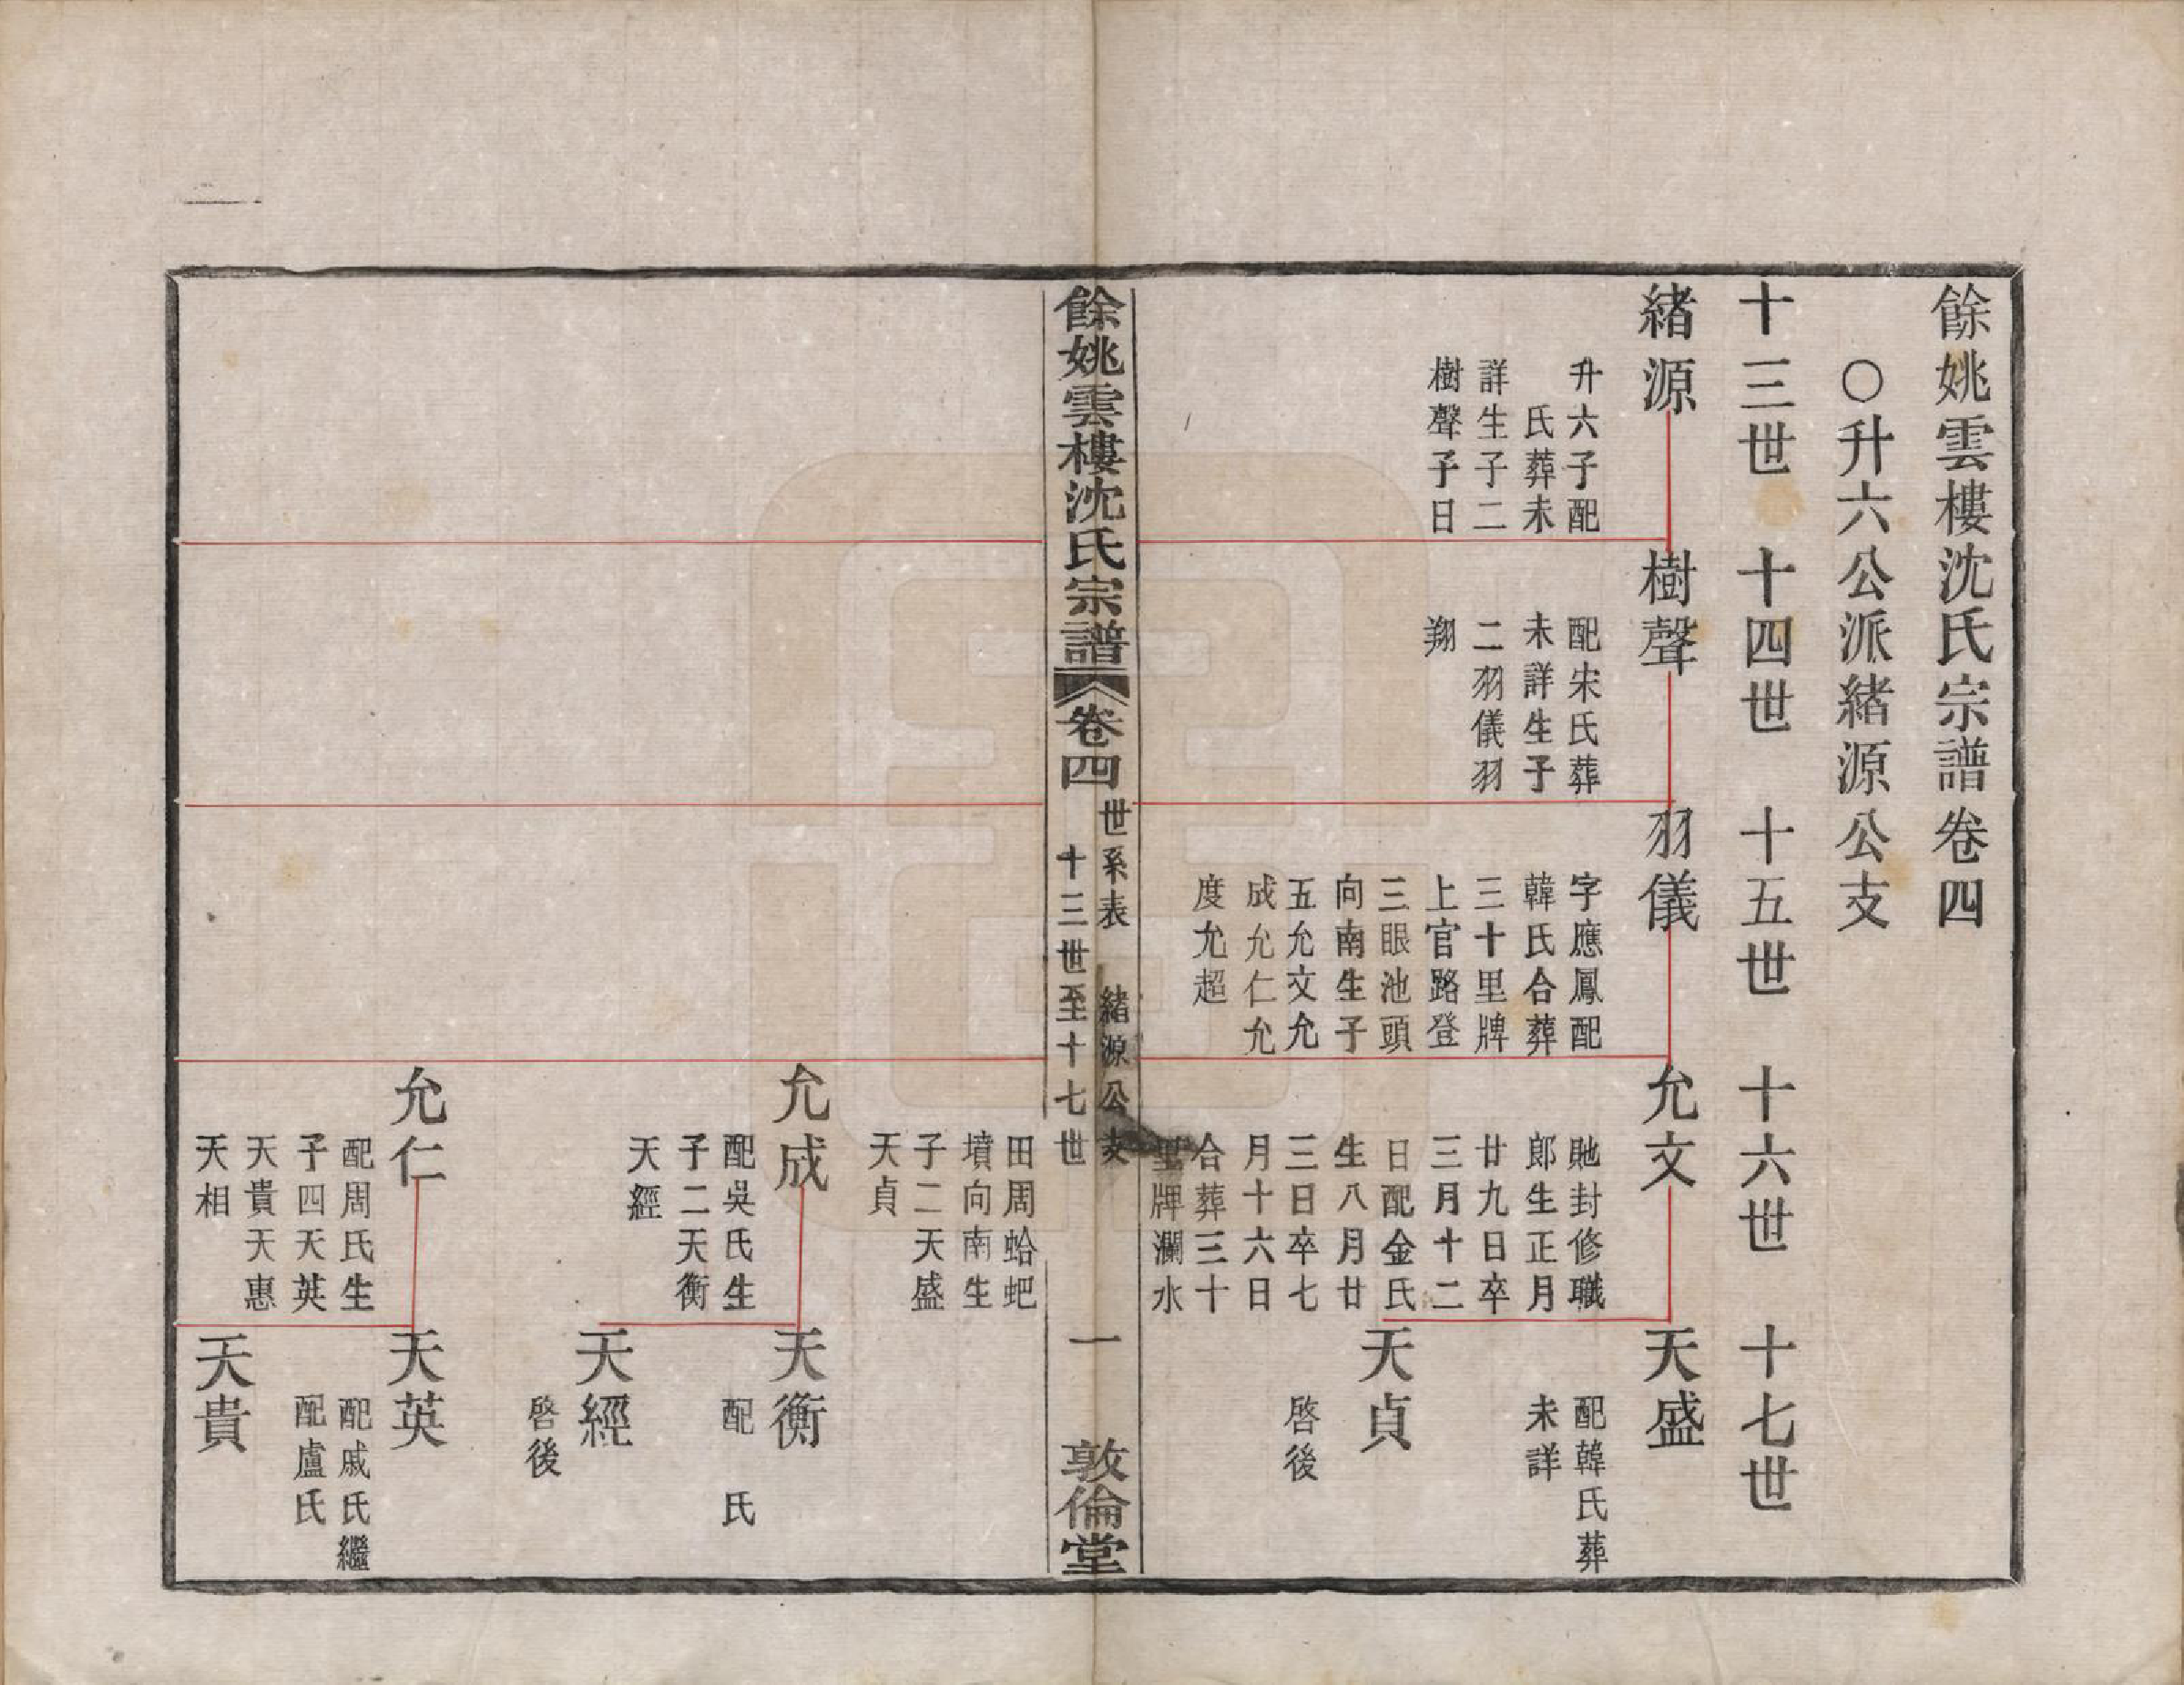 餘姚雲樓沈氏宗譜卷四
〇升六公派緒源公支
十三世
十四世
十五世
十六世
十七世
緒源
升六子配
氏葬未
詳生子二
樹聲予日
樹聲
配宋氏葬
未詳生子
二羽儀羽
翔
羽儀
字應鳳配
韓氏合葬
三十里牌
上官路登
三眼池頭
向南生子
五允文允
成允仁允
度允超
允文
貤封修職
郎生正月
廿九日卒
三月十二
日配金氏
生八月廿
三日卒七
月十六日
合葬三十
里牌瀾水
天盛
配韓氏葬
未詳
天貞
啓後
餘姚雲樓沈氏宗譜
卷四
世系表 緒源公支
十三世至十七世
一
敦倫堂
田周蛤蚆
墳向南生
子二天盛
天貞
允成
配吳氏生
子二天衡
天經
天衡
配 氏
天經
啓後
允仁
配周氏生
子四天英
天貴天惠
天相
天英
配戚氏繼
配盧氏
天貴